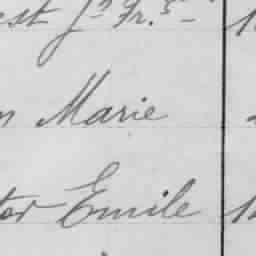 est Jⁿ Fr.ˢ
n Marie
tor Emile